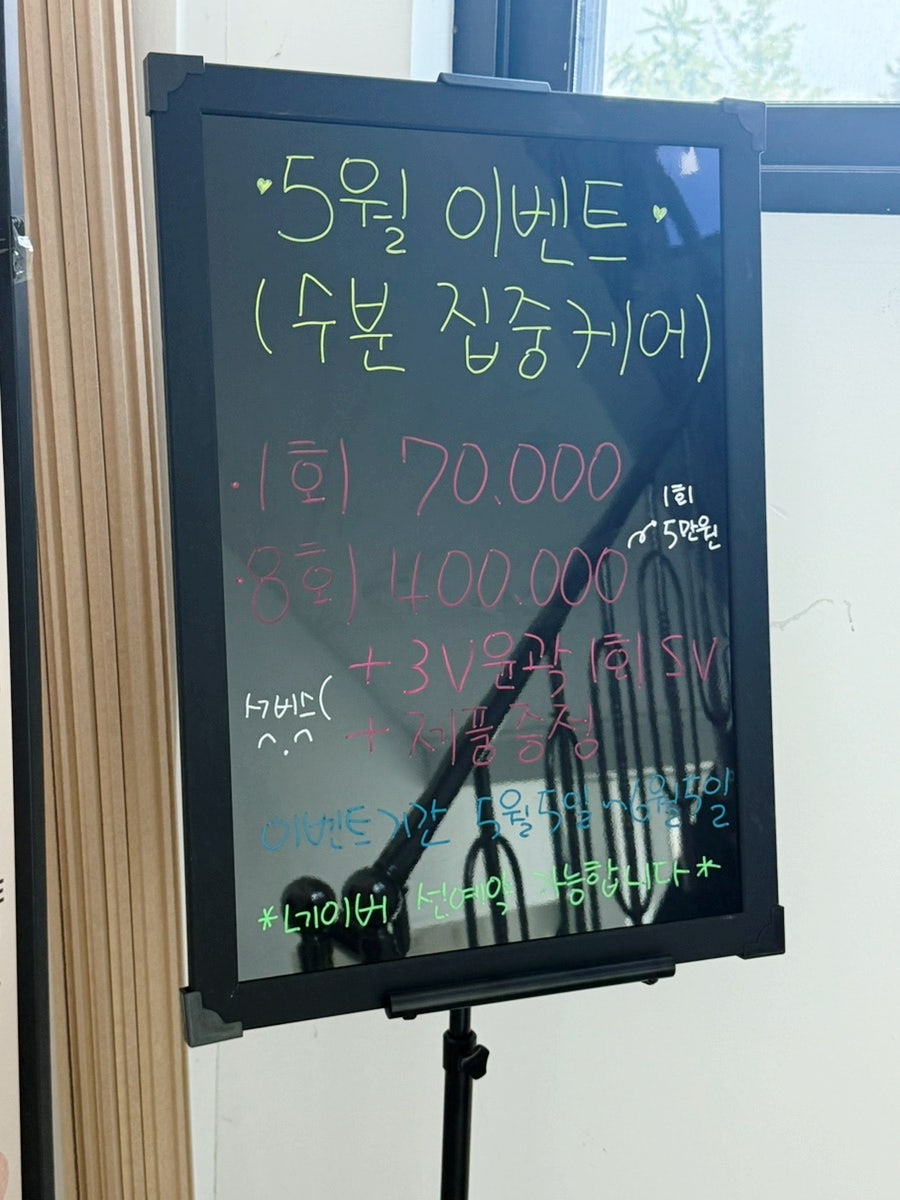 ♥5월 이벤트♥
(수분 집중케어)
·1회 70.000
1회
~5만원
·8회 400.000
+3V윤곽 1회 SV
서버스(
+제품증정
이벤트기간 5월5일~6월5일
*네이버 선예약 가능합니다*